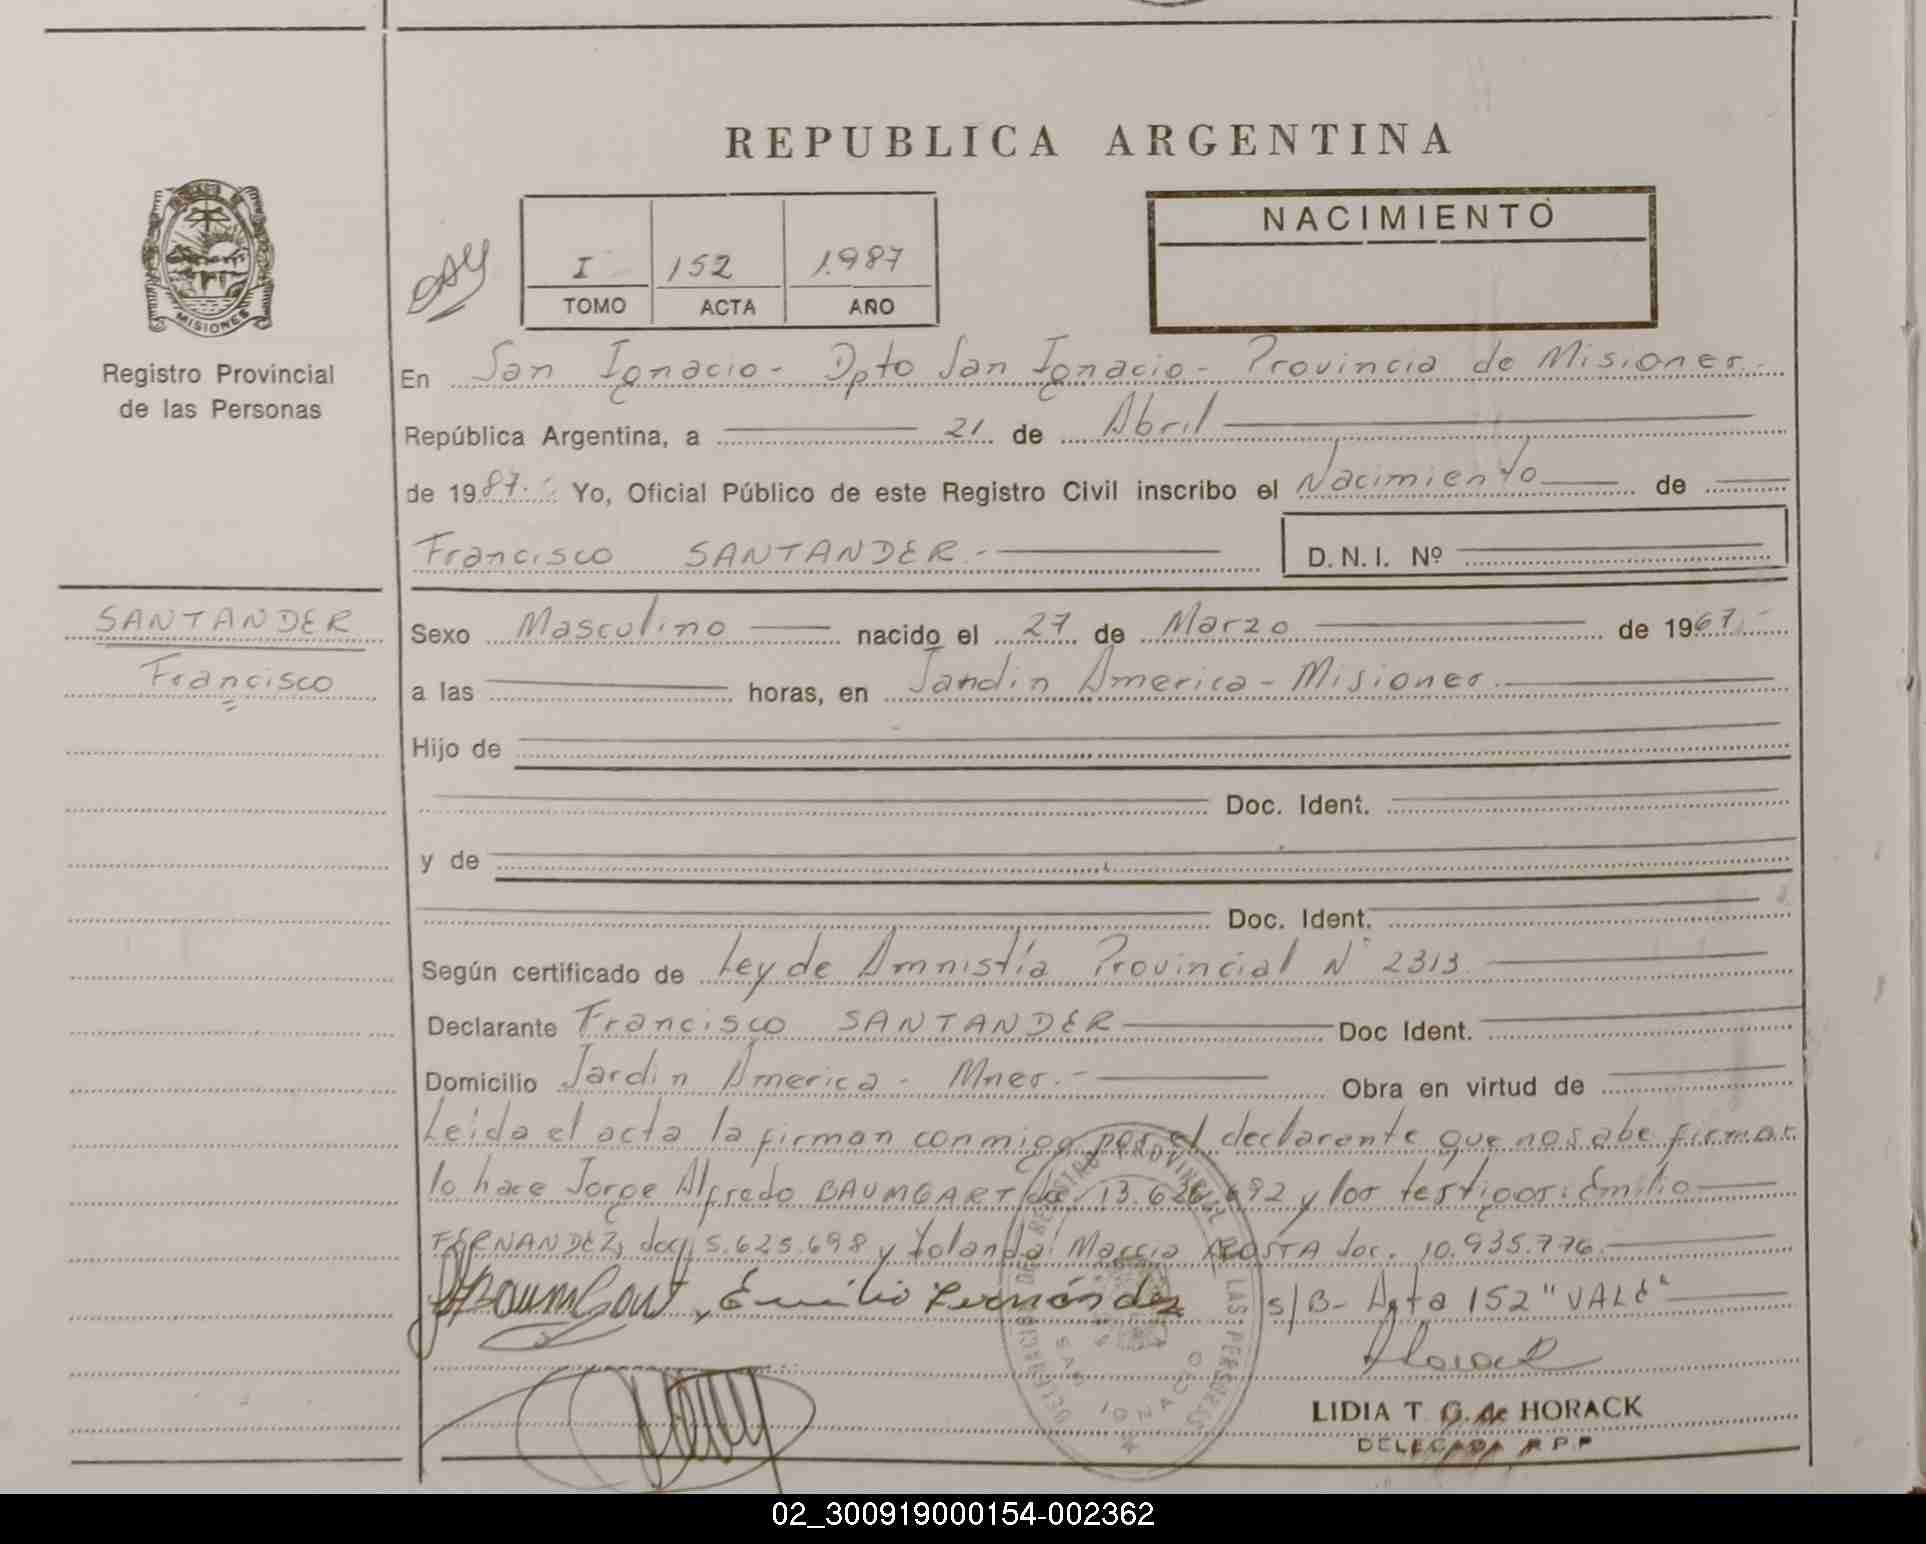 REPUBLICA ARGENTINA
MISIONES
Registro Provincial
de las Personas
I 152 1.987
TOMO ACTA AÑO
NACIMIENTO
En San Ignacio - Dpto San Ignacio - Provincia de Misiones.-
República Argentina, a 21 de Abril
de 1987.- Yo, Oficial Público de este Registro Civil inscribo el Nacimiento de
Francisco SANTANDER.-
D.N.I. Nº
SANTANDER
Francisco
Sexo Masculino nacido el 27 de Marzo de 1967.-
a las horas, en Jardin America - Misiones.
Hijo de
Doc. Ident.
y de
Doc. Ident.
Según certificado de Ley de Amnistía Provincial Nº 2313
Declarante Francisco SANTANDER Doc Ident.
Domicilio Jardin America - Mnes.- Obra en virtud de
Leida el acta la firman conmigo por el declarante que no sabe firmar
lo hace Jorge Alfredo BAUMGART doc 13.626.692 y los testigos: Emilio
FERNANDEZ, doc 5.625.698 y Yolanda Marcia ACOSTA doc. 10.935.776.
Baumgart, Emilio Fernández s/B- Acta 152 "VALE"
Horack
LIDIA T. G. de HORACK
DELEGADA R.P.P
REGISTRO PROVINCIAL DE LAS PERSONAS
SAN IGNACIO
02_300919000154-002362